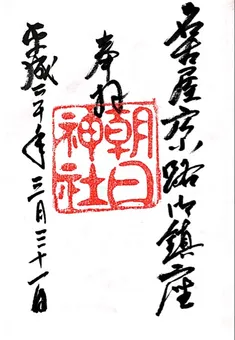 名古屋京路御鎮座
奉拝
朝日神社
平成二十年三月三十一日